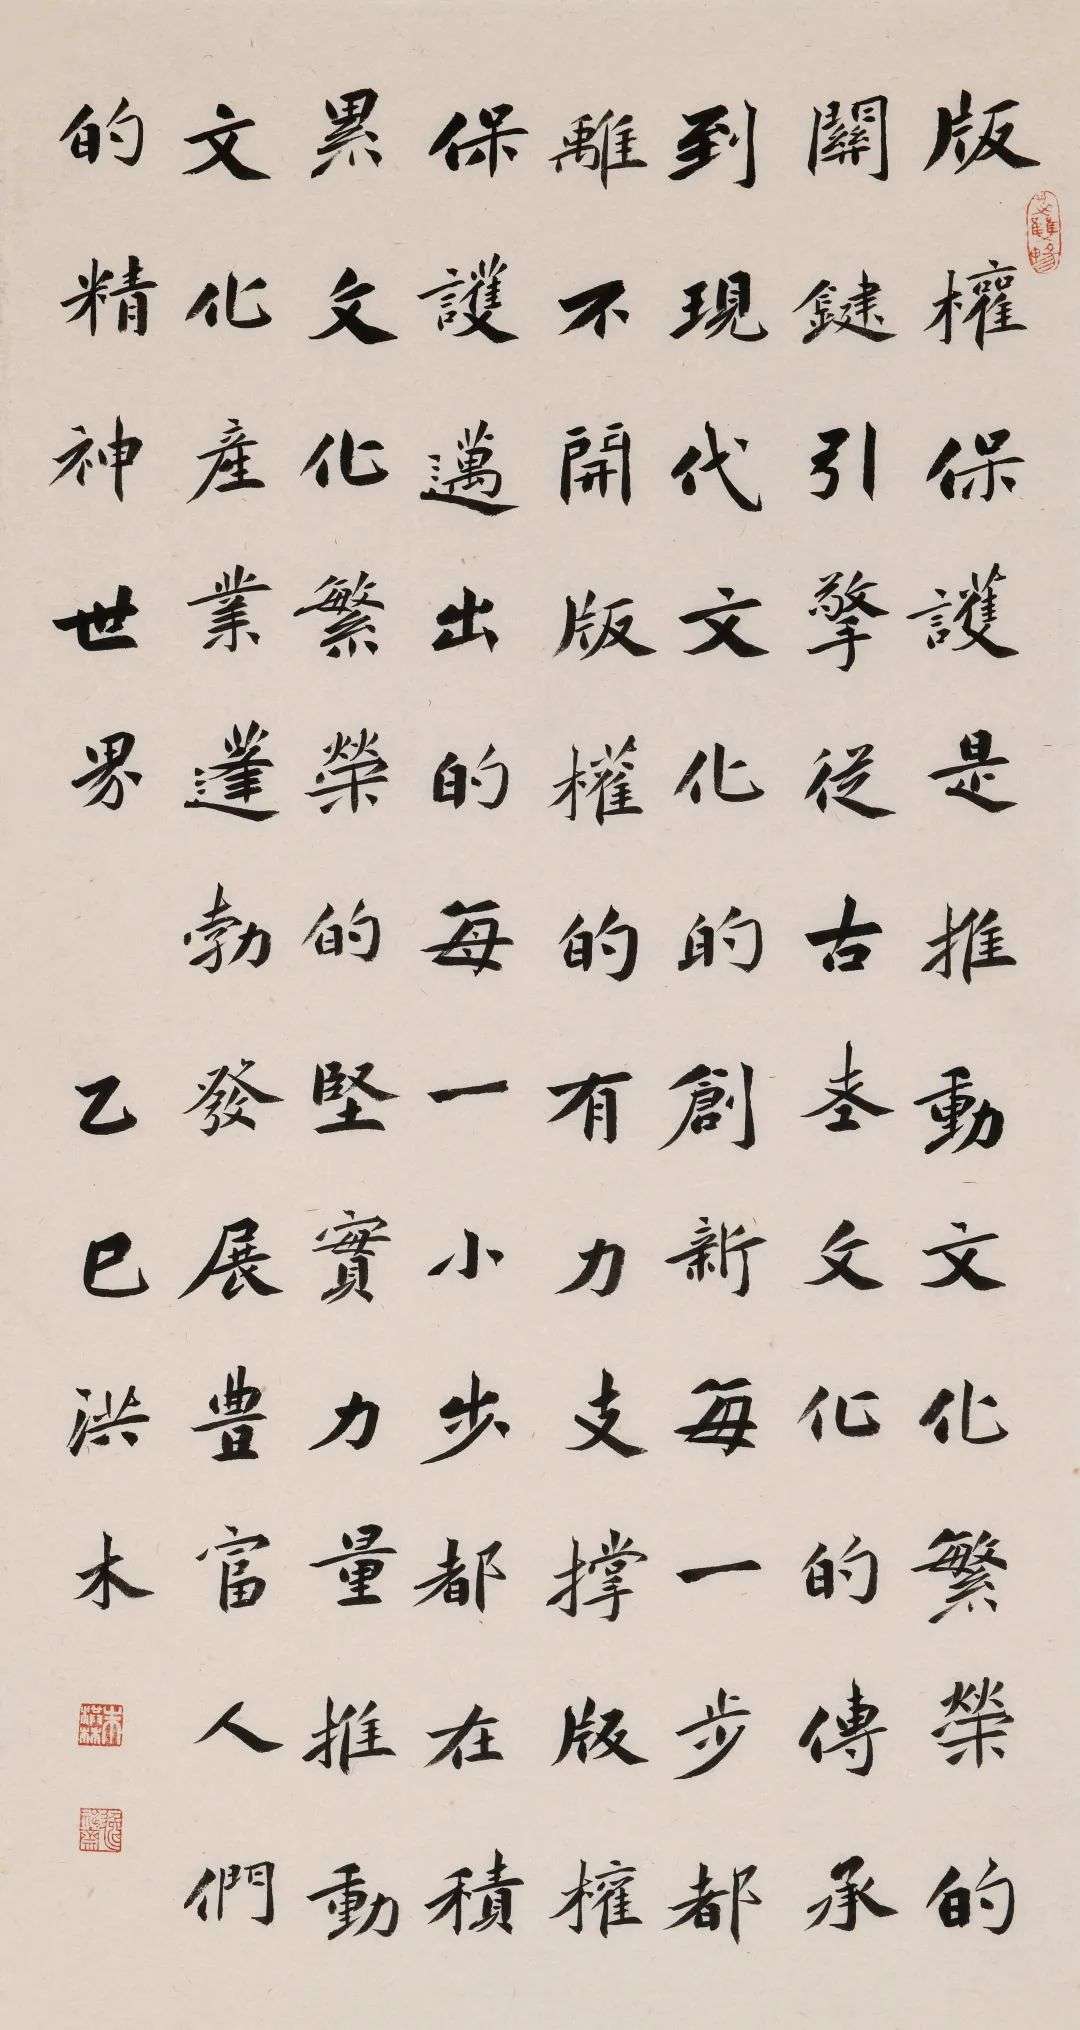 版權保護是推動文化繁榮的
關鍵引擎從古老文化的傳承
到現代文化的創新每一步都
離不開版權的有力支撑版權
保護邁出的每一小步都在積
累文化繁榮的堅實力量推動
文化産業蓬勃發展豊富人們
的精神世界 乙巳洪木